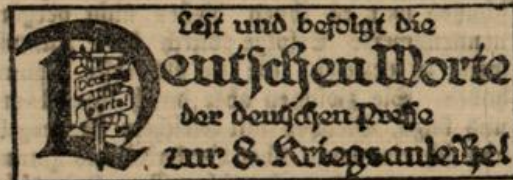 Lest und befolgt die
Deutschen Worte
der deutschen Presse
zur 8. Kriegsanleihe!